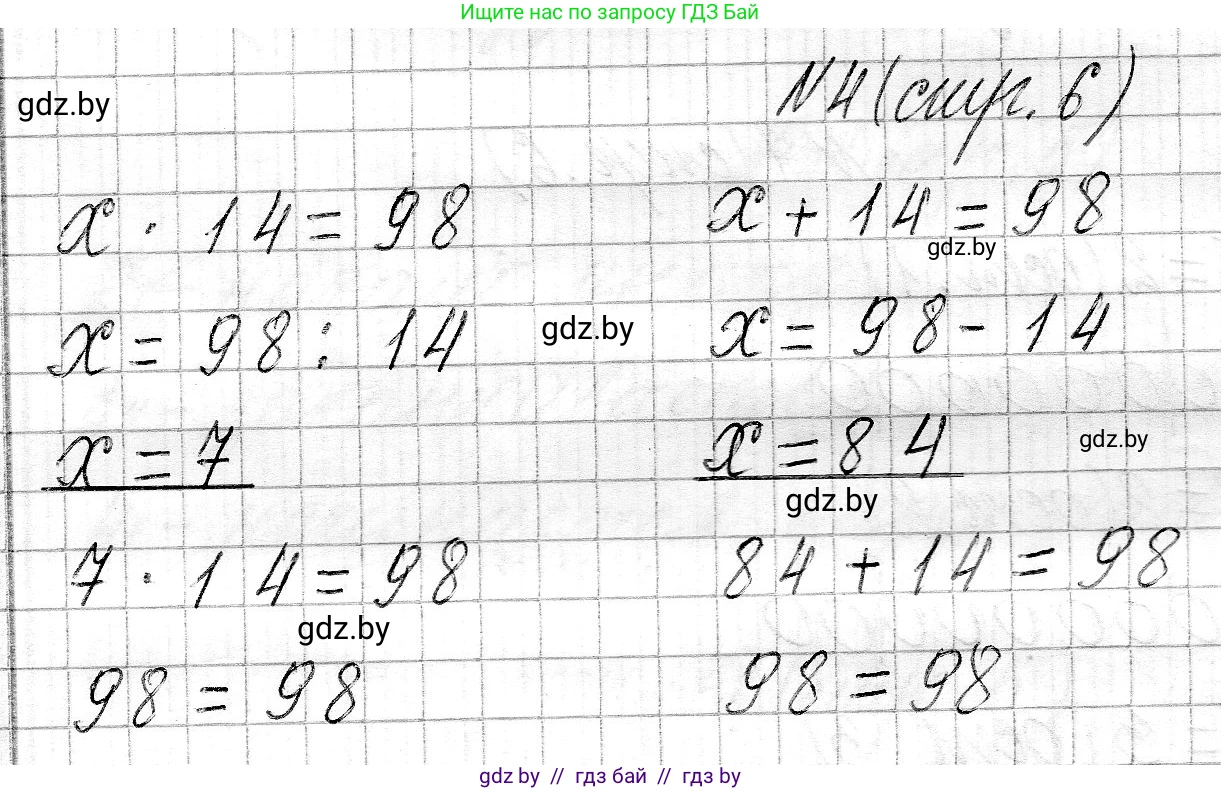 Ищите нас по запросу ГДЗ Бай
N4 (стр. 6)
gdz.by
x · 14 = 98
x + 14 = 98
gdz.by
x = 98 : 14
gdz.by
x = 98 - 14
x = 7
x = 84
gdz.by
gdz.by
7 · 14 = 98
84 + 14 = 98
gdz.by
98 = 98
98 = 98
gdz.by // гдз бай // гдз by